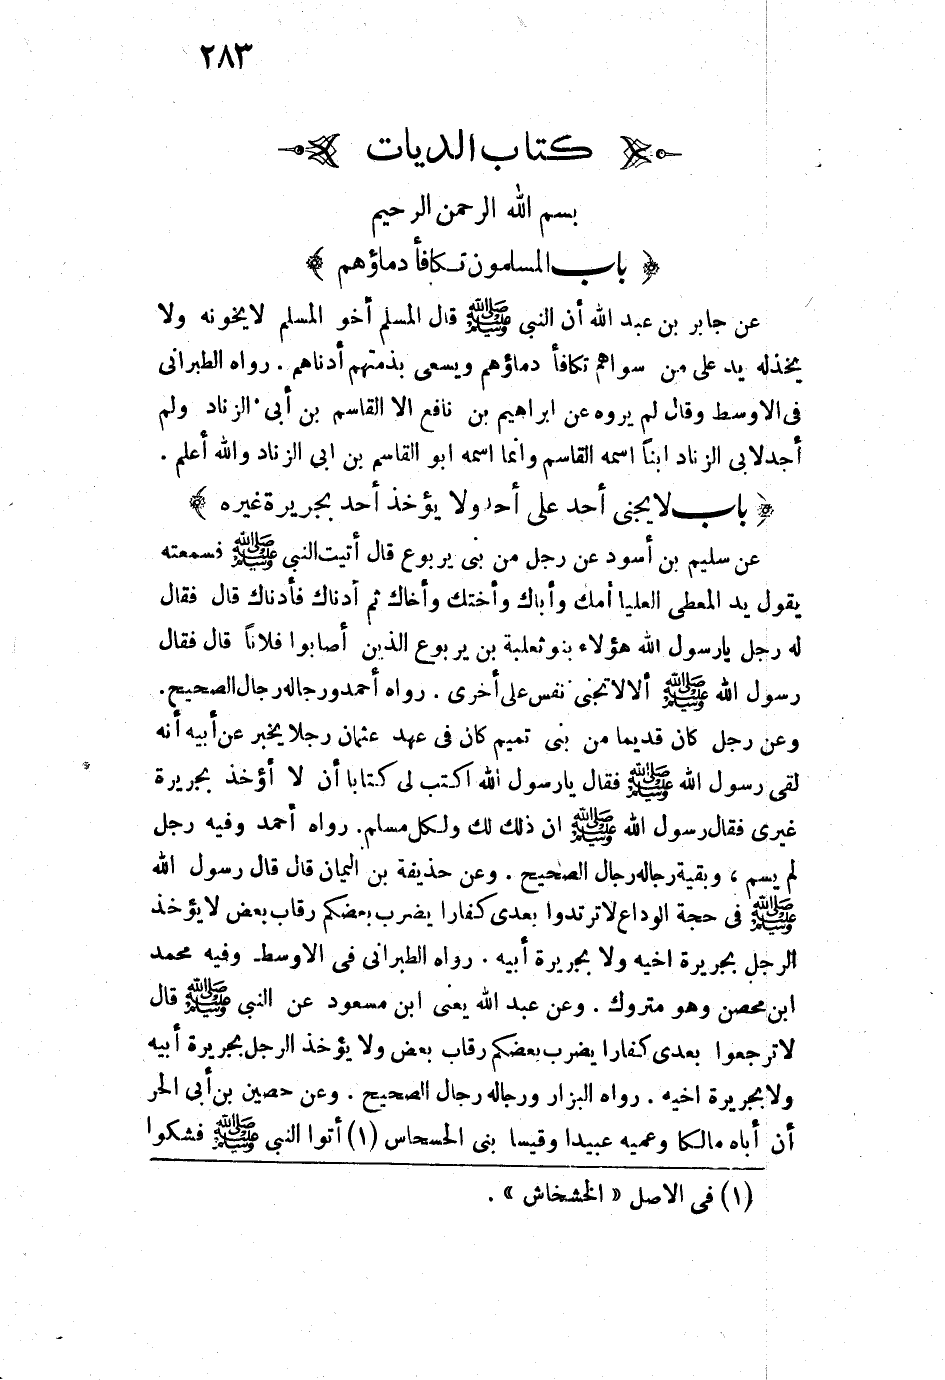 ٢٨٣
كتاب الديات
بسم الله الرحمن الرحيم
﴿ باب المسلمون تتكافأ دماؤهم ﴾
عن جابر بن عبد الله أن النبي ﷺ قال المسلم أخو المسلم لا يخونه ولا
يخذله يد على من سواهم تكافأ دماؤهم ويسعى بذمتهم أدناهم . رواه الطبرانى
فى الاوسط وقال لم يروه عن ابراهيم بن نافع الا القاسم بن أبى الزناد ولم
أجد لابى الزناد ابناً اسمه القاسم وانما اسمه ابو القاسم بن ابى الزناد والله أعلم .
﴿ باب لا يجنى أحد على أحد ولا يؤخذ أحد بجريرة غيره ﴾
عن سليم بن أسود عن رجل من بنى يربوع قال أتيت النبي ﷺ فسمعته
يقول يد المعطى العليا أمك وأباك وأختك وأخاك ثم أدناك فأدناك قال فقال
له رجل يا رسول الله هؤلاء بنو ثعلبة بن يربوع الذين أصابوا فلاناً قال فقال
رسول الله ﷺ ألا لا تجنى نفس على أخرى . رواه أحمد ورجاله رجال الصحيح .
وعن رجل كان قديما من بنى تميم كان فى عهد عثمان رجلا يخبر عن أبيه أنه
لقى رسول الله ﷺ فقال يا رسول الله اكتب لى كتابا أن لا أؤخذ بجريرة
غيرى فقال رسول الله ﷺ ان ذلك لك ولكل مسلم . رواه أحمد وفيه رجل
لم يسم ، وبقية رجاله رجال الصحيح . وعن حذيفة بن اليمان قال قال رسول الله
ﷺ فى حجة الوداع لا ترتدوا بعدى كفارا يضرب بعضكم رقاب بعض لا يؤخذ
الرجل بجريرة اخيه ولا بجريرة أبيه . رواه الطبرانى فى الاوسط وفيه محمد
ابن محصن وهو متروك . وعن عبد الله يعنى ابن مسعود عن النبي ﷺ قال
لا ترجعوا بعدى كفارا يضرب بعضكم رقاب بعض ولا يؤخذ الرجل بجريرة أبيه
ولا بجريرة اخيه . رواه البزار ورجاله رجال الصحيح . وعن حصين بن أبى الحر
أن أباه مالكا وعميه عبيدا وقيسا بنى الحسحاس (١) أتوا النبي ﷺ فشكوا
(١) فى الاصل « الخشخاش » .